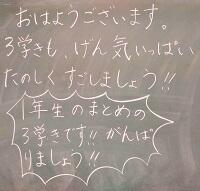 おはようございます。
3学きも、げん気いっぱい
たのしくすごしましょう!!
1年生のまとめの
3学きです!!がんば
りましょう!!